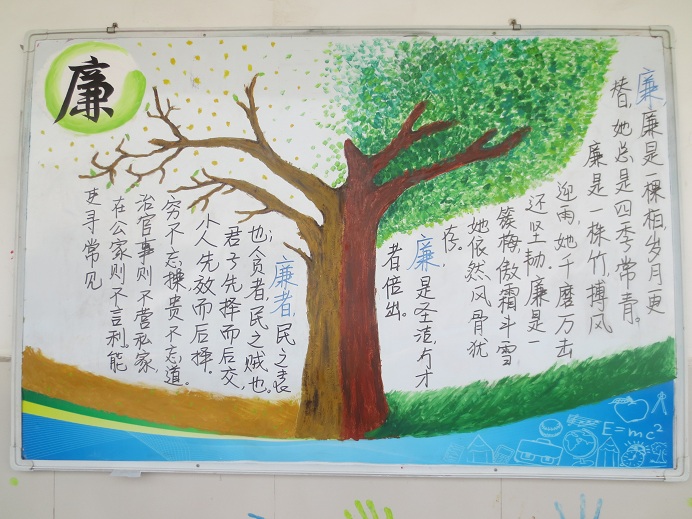 廉
廉,廉是一棵柏,岁月更
替,她总是四季常青。
廉是一株竹,搏风
迎雨,她千磨万去
还坚韧。廉是一
簇梅,傲霜斗雪
她依然风骨犹
存。
廉,是圣洁,为才
者倍出。
廉者,民之表
也;贪者,民之贼也。
君子先择而后交
小人先效而后择.
穷不忘操,贵不忘道。
治官事则不营私家,
在公家则不言利。能
吏寻常见
E=mc²